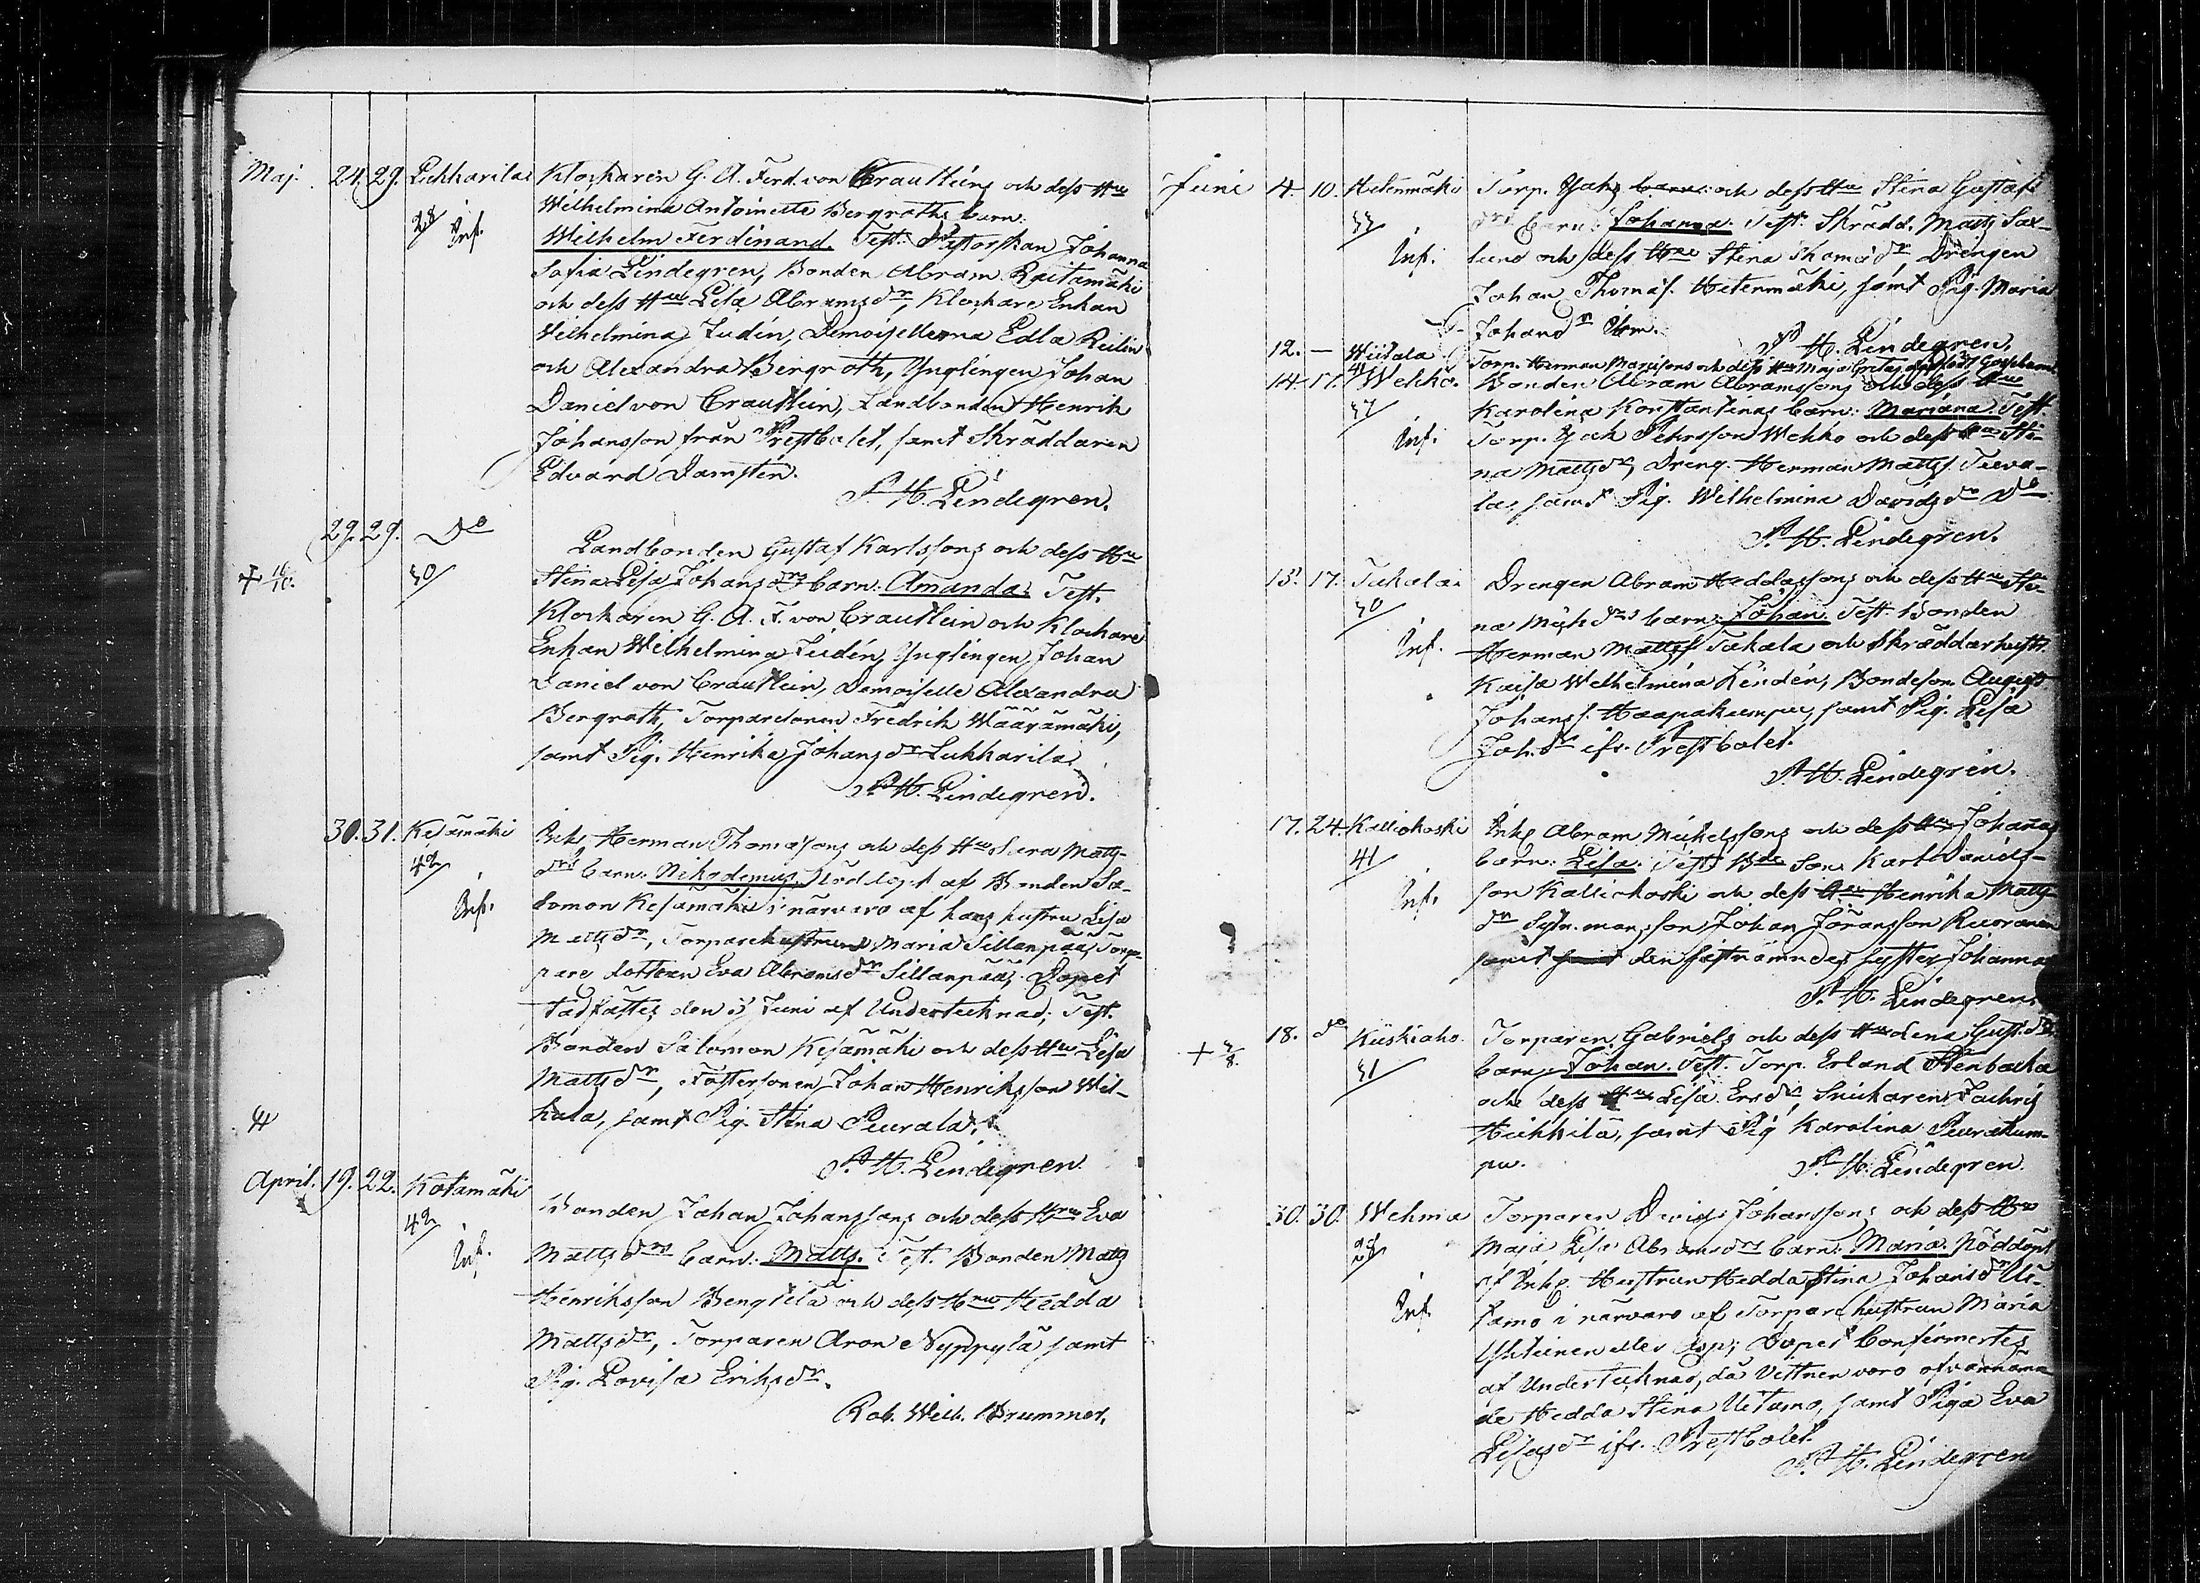 Maj. 24. 29. Lukkarila Klockaren G. A. Ferd. von Crautleins och dess Hu
28/ Wilhelmina Antoinetta Bergroths barn:
Inf. Wilhelm Ferdinand. Test: Pastorskan Johanna
Sofia Lindegren, Bonden Abram Rautamäki
och dess Hu Lisa Abramsdr, Klockare Enkan
Wilhelmina Judén, Demoisellerna Edla Reilin
och Alexandra Bergroth, Ynglingen Johan
Daniel von Crautlein, Landbonden Henrik
Johansson från Prestbolet, samt Skräddaren
Edvard Damstén.
P. H. Lindegren.
29. 29. Do Landbonden Gustaf Karlssons och dess Hu
+ 16/10. 30/ Stina Lisa Johansdrs barn: Amanda: Test.
Klockaren G. A. F. von Crautlein och Klockare
Enkan Wilhelmina Judén, Ynglingen Johan
Daniel von Crautlein, Demoiselle Alexandra
Bergroth, Torparsonen Fredrik Wäärämäki,
samt Pig. Henrika Johansdr Lukkarila
P. H. Lindegren.
30. 31. Kesämäki Inh. Herman Thomassons och dess Hu Sara Matts-
42/ drs barn: Nikodemus, Nöddöpt af Bonden Sa-
Inf. lomon Kesämäki i närvaro af hans hustru Lisa
Mattsdr, Torparehustrun Maria Sillanpää, Torp-
pare dottren Eva Abramsdr Sillanpää; Dopet
stadfästes den 3 Juni af Undertecknad; Test.
Bonden Salomon Kesämäki och dess Hu Lisa
Mattsdr, Fostersonen Johan Henriksson Wil-
kala, samt Pig. Stina Peurala.
P. H. Lindegren.
April. 19. 22. Kotamäki Bonden Johan Johanssons och dess Hu Eva
42/ Mattsdrs barn: Matts. Test. Bonden Matts
Inf. Henriksson Bengtilä och dess Hu Hedda
Mattsdr, Torparen Aron Nyppylä samt
Pig. Lovisa Eriksdr.
Rob. Wilh. Brummer.
Juni 4. 10. Hetenmäki Torp. Jaks barn och dess Hu Stina Gustafs
33/ drs barn: Johanna. Test. Skrädd. Matts Sax-
Inf. lund och dess Hu Stina Thomasdr Drengen
Johan Thomas. Hetenmäki, samt Pig. Maria
Johansdr Ibm.
P. H. Lindegren.
12. — Wiitala Torp. Herman Mattssons och dess Hu Maja Gretas dödfödt Gossebarn
14. 17. Wehko. Bonden Abram Abramssons och dess Hu
37/ Karolina Konstantinas barn: Mariana. Test.
Inf. Torp. Jak Pehrsson Wehko och dess Hu Sti-
na Mattsdr, Dreng. Herman Mattss. Teeva-
la, samt Pig. Wilhelmina Davidsdr Do
P. H. Lindegren.
15. 17. Takala Drengen Abram Heddassons och dess Hu Sti-
30/ na Michdrs barn: Johan. Test. Bonden
Inf. Herman Mattss Takala och Skräddarhustr.
Kaisa Wilhelmina Lindén, Bondeson August
Johanss. Haapakumpu, samt Pig. Lisa
Joh.dr ifr. Prestbolet.
P. H. Lindegren.
17. 24. Kalliokoski Inh. Abram Michelssons och dess Hu Johanas
41/ barn: Lisa. Test. Bde Son. Karl Daniels-
Inf. son Kalliokoski och dess Hu Henrika Matts-
dr Sytn. mans son Johan Jöransson Ruoranen
samt samt den sistnämndes syster Johanna
P. H. Lindegren.
+ 3/8. 18. do Kuiskiaho. Torparen Gabriels och dess Hu Lena Gust.drs
31/ barn: Johan. Test. Torp. Erland Stenbacka
och dess Hu Lisa Ersdr, Snickaren Zachris
Heikkilä, samt Pig Karolina Peurakum-
pu.
P. H. Lindegren.
30. 30. Wehmia Torparen Davids Johanssons och dess Hu
Maja Lisa Abramsdrs barn: Maria. Nöddöpt
af Inh. Hustrun Hedda Stina Johansdr Ue-
Inf. tamo i närvaro af Torpare hustrun Maria
Dopet Confirmertes
af Undertecknad, då Vittnen voro ofvannämn-
de Hedda Stina Uetamo, samt Piga Eva
Lisasdr ifr. Prestbolet.
P. H. Lindegren